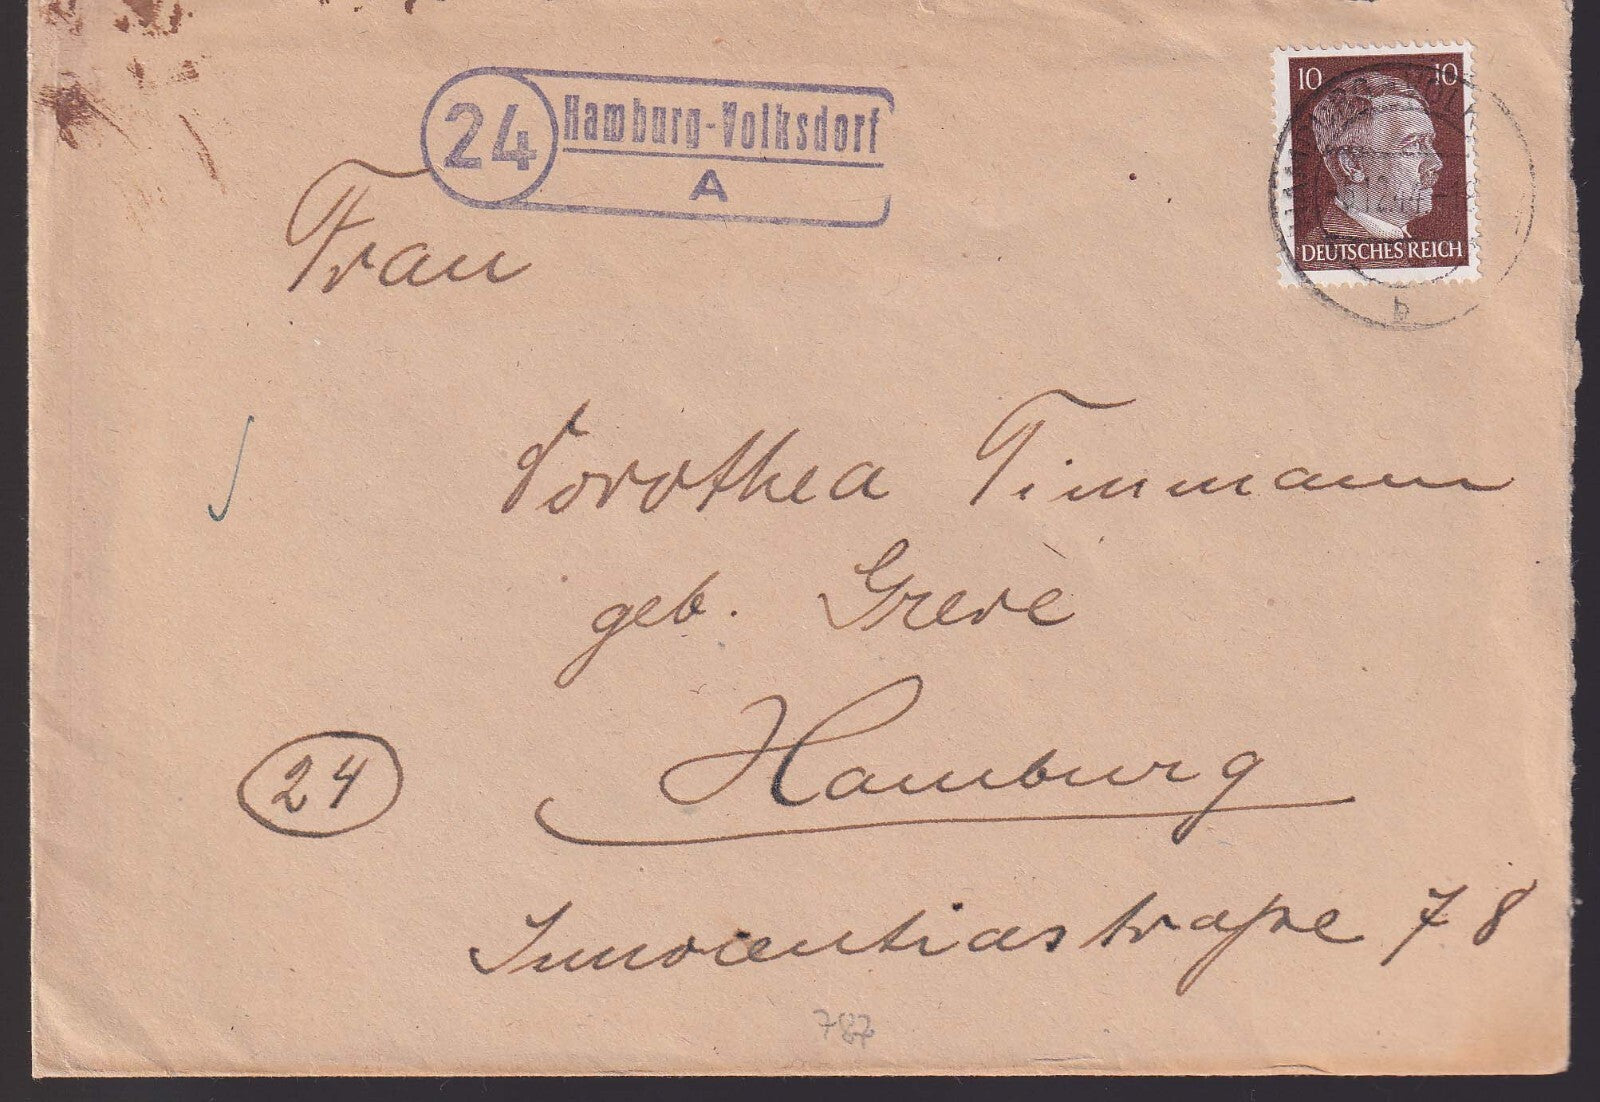 24 Hamburg-Volksdorf
A
10 10
DEUTSCHES REICH
b
Frau
Dorothea Timmann
geb. Greve
24 Hamburg
Innocentiastraße 78
787